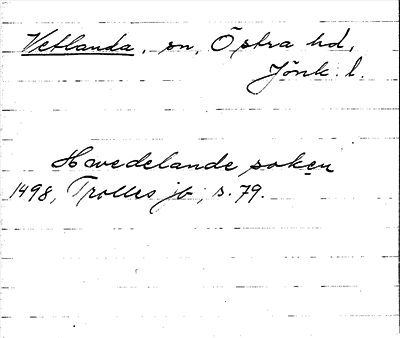 Vetlanda, sn, Östra hd,
Jönk. l.
Hwedelande soken
1498, Trolles jb, s. 79.